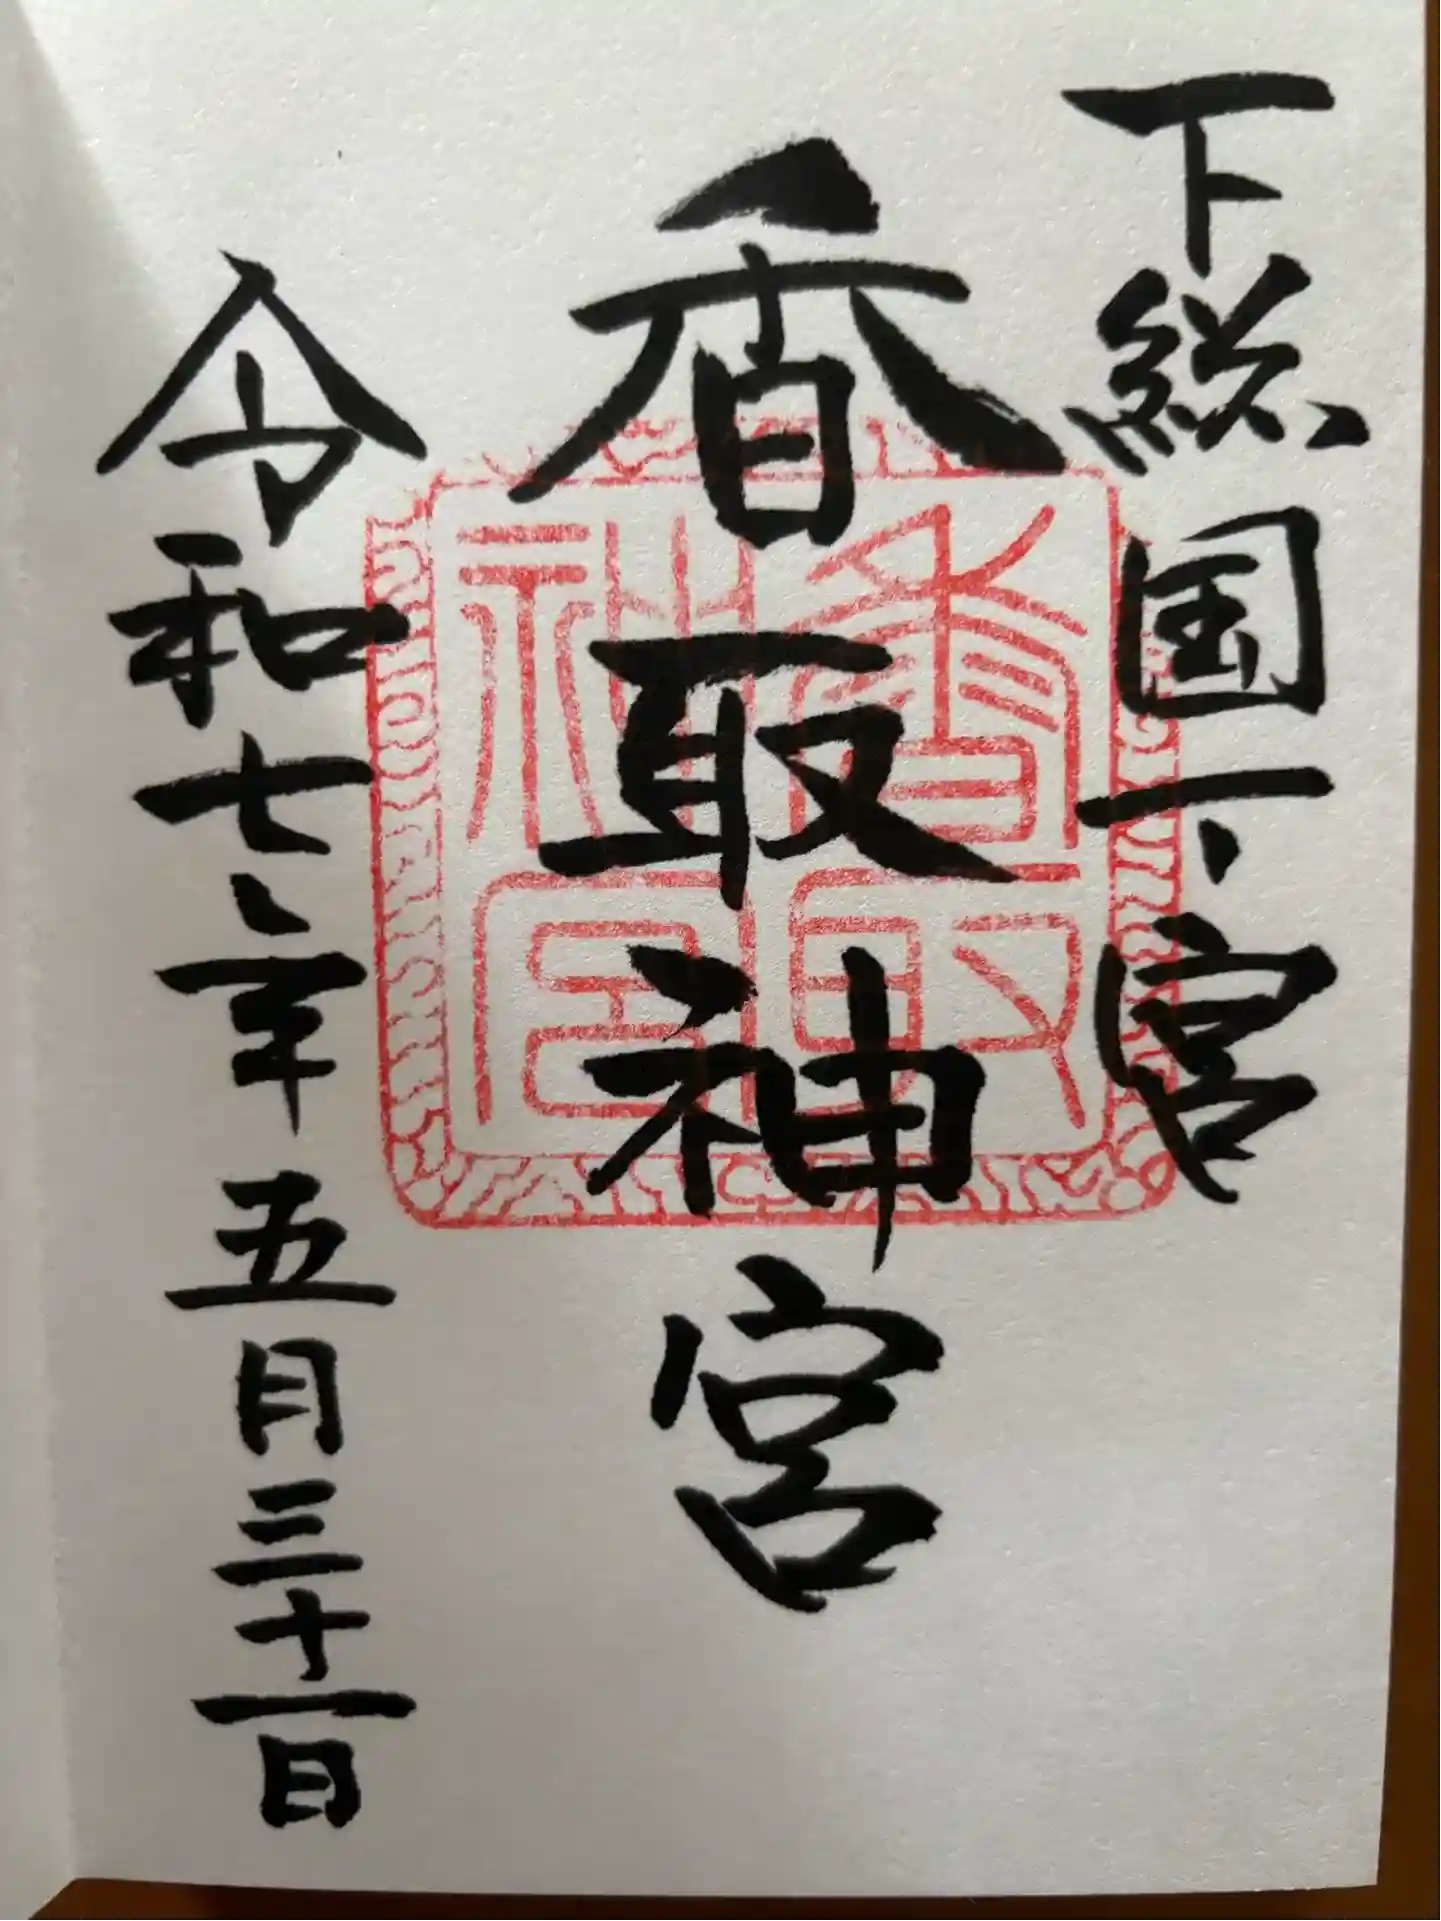 下総国一宮
香取神宮
香取
神宮
令和七年五月三十一日